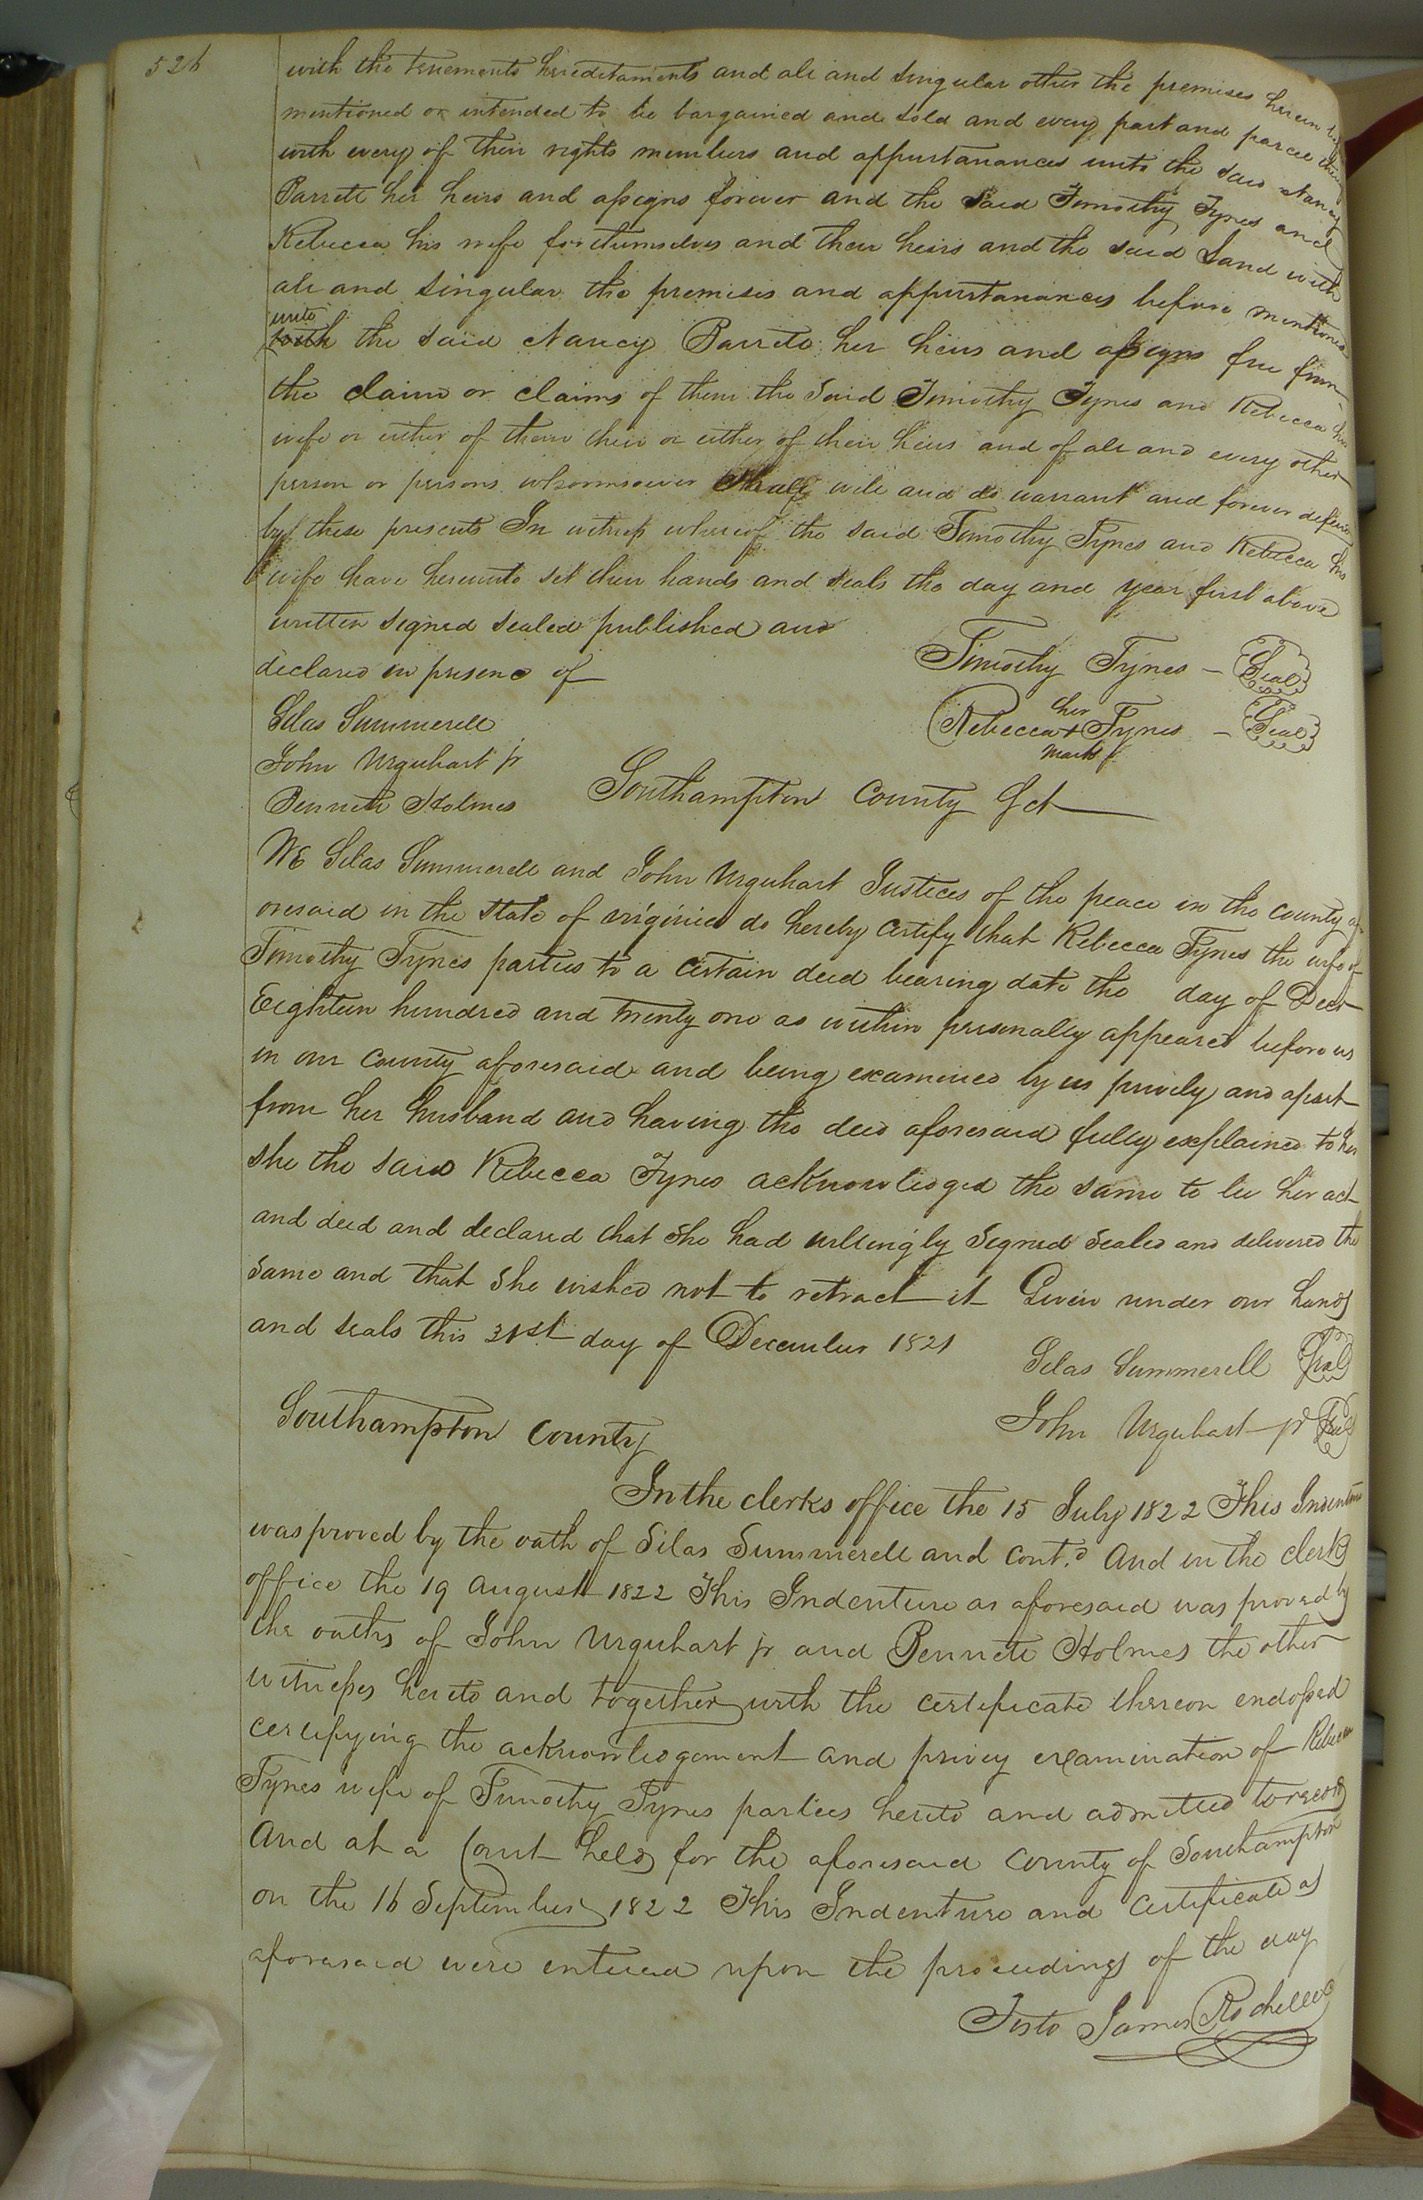 526
with the tenements hereditaments and all and singular other the premises herein by
mentioned or intended to be bargained and sold and every part and parcel
with every of their rights members and appurtanances unto the said Nancy
Barrett her heirs and assigns forever and the said Timothy Tynes and
Rebecca his wife for themselves and their heirs and the said Land with
all and singular the premises and appurtanances before mentioned
unto
with the said Nancy Barrett her heirs and assigns free from
the claim or claims of them the said Timothy Tynes and Rebecca his
wife or either of them their or either of their heirs and of all and every other
person or persons whomsoever shall will and do warrant and forever defend
by these presents In witness whereof the said Timothy Tynes and Rebecca his
wife have hereunto set their hands and seals the day and year first above
written signed sealed published and
declared in presence of
Timothy Tynes – Seal
Silas Summerell
her
Rebecca + Tynes – Seal
mark
John Urquhart jr
Bennett Holmes
Southampton County Sct
We Silas Summerell and John Urquhart Justices of the peace in the county af
oresaid in the State of virginia do hereby certify that Rebecca Tynes the wife of
Timothy Tynes parties to a certain deed bearing date the day of Decr
Eighteen hundred and twenty one as within personally appeared before us
in our County aforesaid and being examined by us privily and apart
from her husband and having the deed aforesaid fully explained to her
she the said Rebecca Tynes acknowledged the same to be her act
and deed and declared that she had willingly signed sealed and delivered the
same and that she wished not to retract it Given under our hands
and seals this 31st day of December 1821
Silas Summerell Seal
John Urquhart jr Seal
Southampton County
In the clerks office the 15 July 1822 This Indenture
was proved by the oath of Silas Summerell and Cont.d And in the clerks
office the 19 August 1822 This Indenture as aforesaid was proved by
the oaths of John Urquhart jr and Bennett Holmes the other
witnesses hereto and together with the certificate thereon endorsed
certifying the acknowledgement and privy examination of Rebecca
Tynes wife of Timothy Tynes parties hereto and admitted to record
And at a Court held for the aforesaid County of Southampton
on the 16 September 1822 This Indenture and Certificate as
aforesaid were entered upon the proceedings of the day
Teste James Rochelle